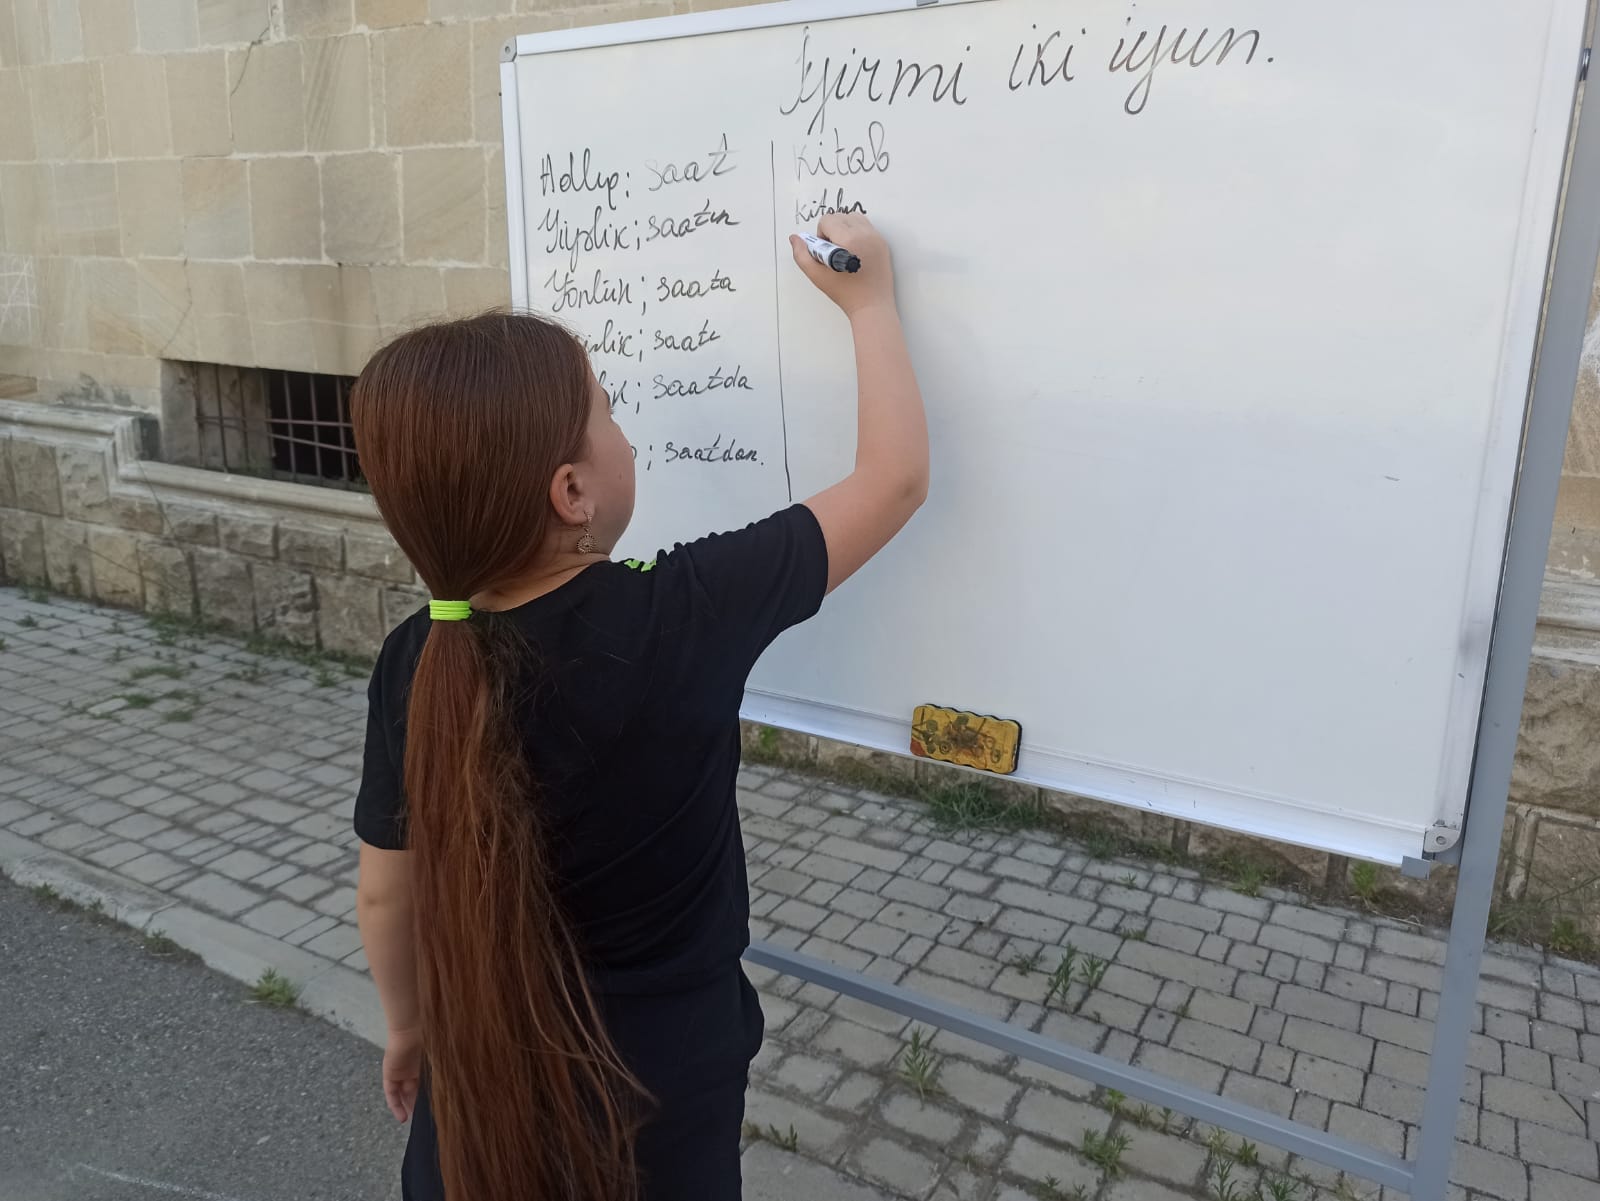 İyirmi iki iyun.
Adlıq: saat
Yiyəlik; saatın
Yönlük; saata
saatı
saatda
saatdan.
Kitab
Kitabın